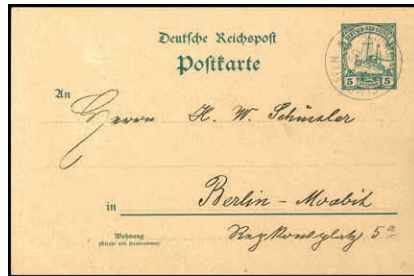 Deutsche Reichspost
Postkarte
An
Herrn H. W. Schüssler
in Berlin - Moabit
Wohnung
(Straße und Hausnummer)
5a
5 5